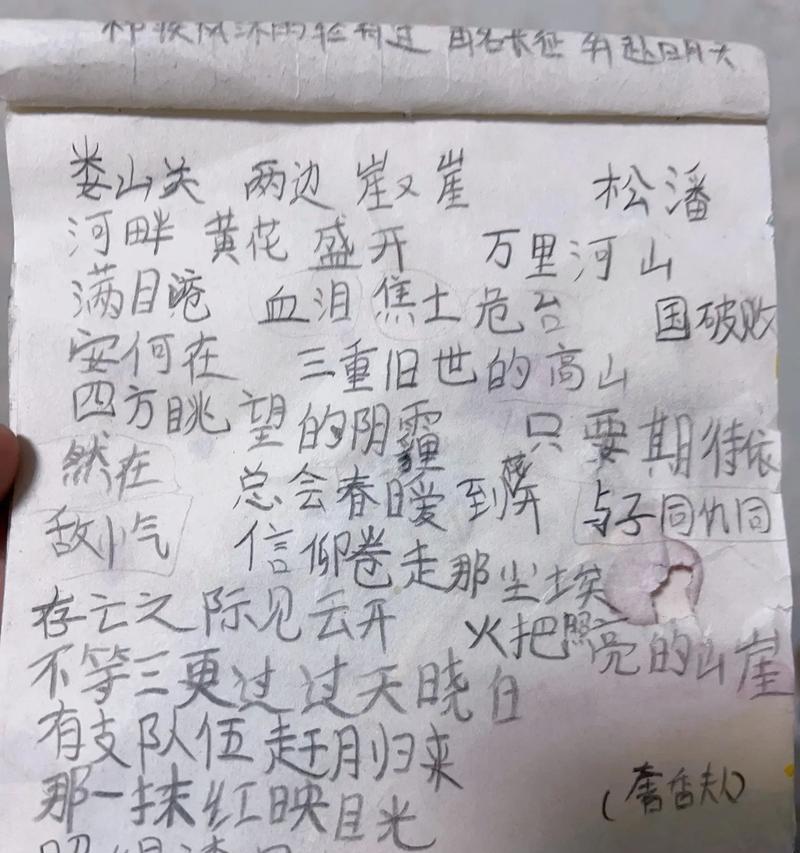 娄山关 两边 崖又崖 松潘
河畔 黄花 盛开 万里河山
满目疮 血泪焦土危台 国破败
安何在 三重旧世的高山
四方眺望的阴霾 只要期待依
然在 总会春暖到 与子同仇同
敌忾 信仰卷走那尘埃
存亡之际见云开 火把照亮的山崖
不等三更过过天晓白
有支队伍赶月归来
那一抹红映目光
(奢香夫人)